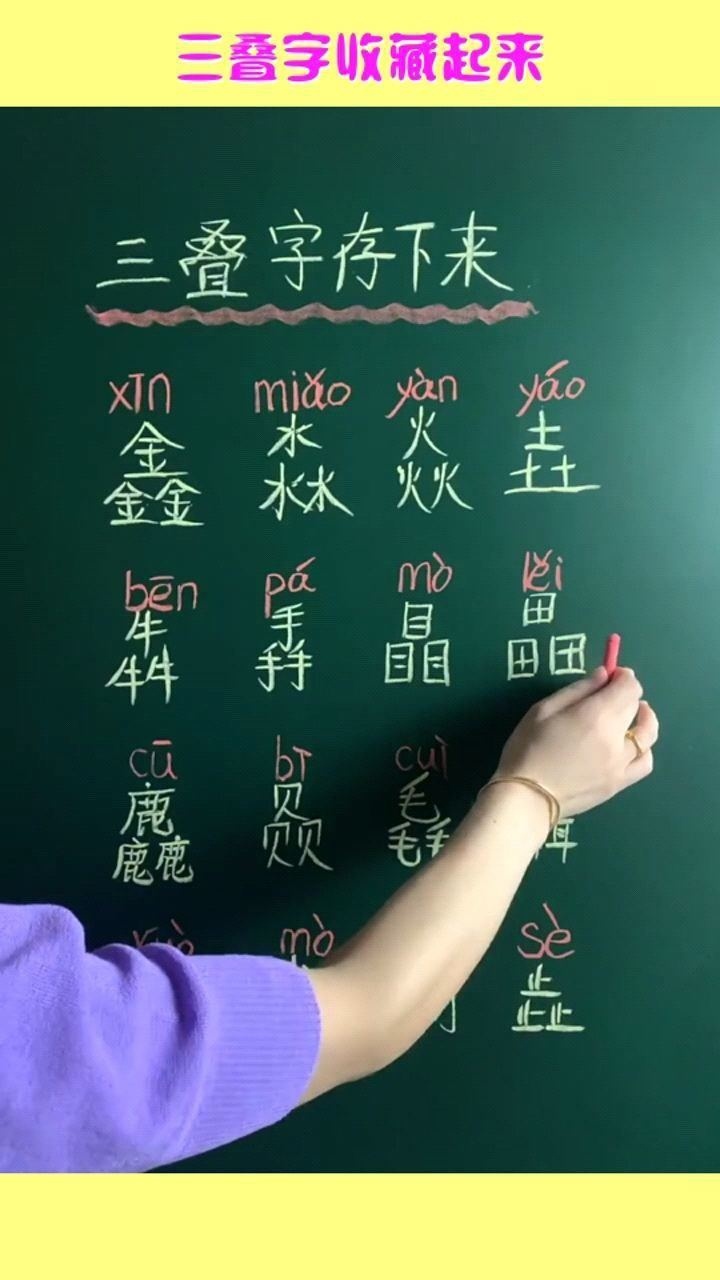 三叠字收藏起来
三叠字存下来
xīn miǎo yàn yáo
鑫 淼 焱 垚
bēn pá mò lěi
犇 掱 瞐 畾
cū bī cuì
麤 赑 毳
mò sè
歮